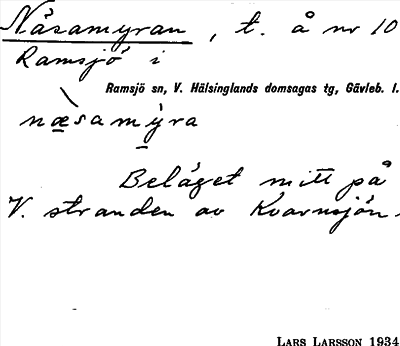 Näsamyran, t. å nr 10
Ramsjö i
Ramsjö sn, V. Hälsinglands domsagas tg, Gävleb. l.
næ̠samỳ̠ra
Beläget mitt på
V. stranden av Kvarnsjön.
LARS LARSSON 1934